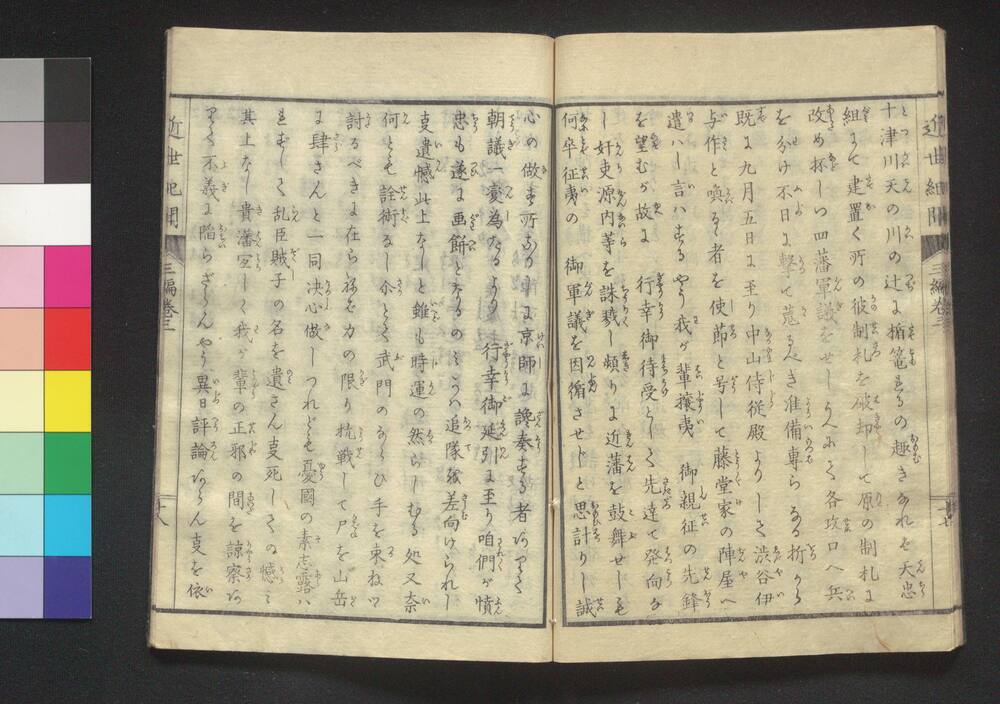 近世紀聞 三編卷三 十七
十津川天の川の辻に楯篭るの趣きあれど天忠
組にて建置く所の彼制札を破却して原の制札に
改め抔しつ四藩軍議をせしうへにて各攻口へ兵
を分け不日に撃て蒐るべき准備専らなる折から
既に九月五日に至り中山侍従殿よりして渋谷伊
与作と喚る者を使節と号して藤堂家の陣屋へ
遣ハし言ハするやう我が輩攘夷 御親征の先鋒
を望むが故に 行幸御待受として先達て発向な
し奸吏源内等を誅戮し頻りに近藩を鼓舞せしも
何卒征夷の御軍議を因循させじと思計りし誠
心の做す所なりしに京師に讒奏する者ありて
朝議一変為たるより 行幸御延引に至り咱們が憤
忠も遂に画餅となるのミかハ追隊を差向けられし
事遺憾此上なしと雖も時運の然らしむる処又奈
何とも詮術なし尒とて武門のならひ手を束ねつ
討るべきに在らねバ力の限り抗戦して尸を山岳
に肆さんと一同決心做しつれども憂國の素志露ハ
れずして乱臣賊子の名を遺さん事死しての憾ミ
其上なし貴藩宜しく我が輩の正邪の間を諒察あ
りて不義に陥らざらんやう異日評論あらん事を依
近世紀聞 三編卷三 十八